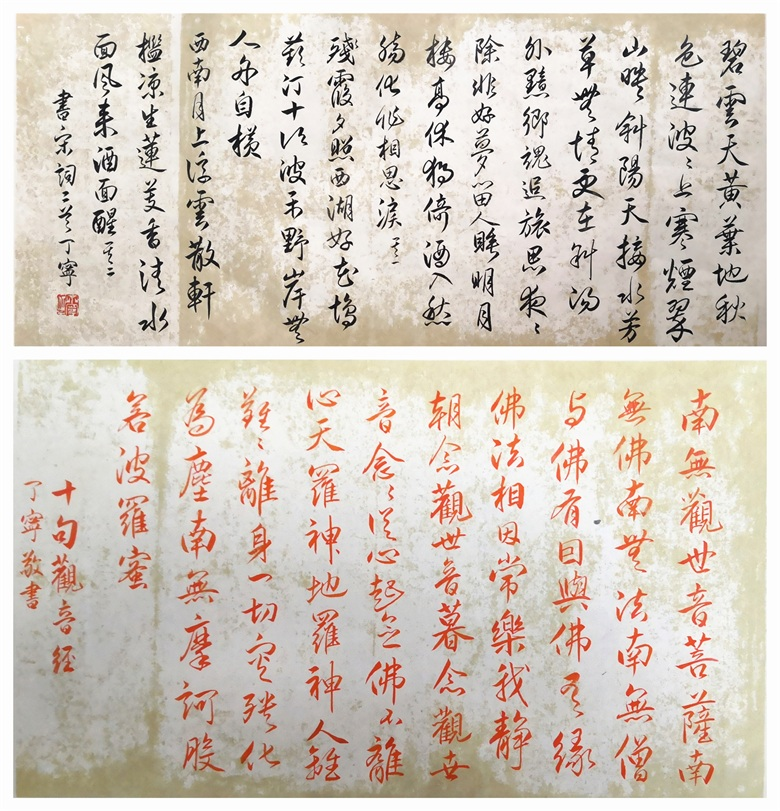 碧雲天黃葉地秋
色連波〻上寒煙翠
山暎斜陽天接水芳
草無情更在斜陽
外黯鄉魂追旅思夜〻
除非好夢留人睡明月
樓高休獨倚酒入愁
腸化作相思淚 其一
殘霞夕照西湖好花塢
蘋汀十頃波平野岸無
人舟自橫
西南月上浮雲散軒
檻涼生蓮芰香清水
面風來酒面醒 其二
書宋詞二首丁寧
南無觀世音菩薩南
無佛南無法南無僧
与佛有因與佛有緣
佛法相因常樂我靜
朝念觀世音暮念觀世
音念〻從心起念佛不離
心天羅神地羅神人離
難〻離身一切灾殃化
為塵南無摩訶般
若波羅蜜
十句觀音經
丁寧敬書